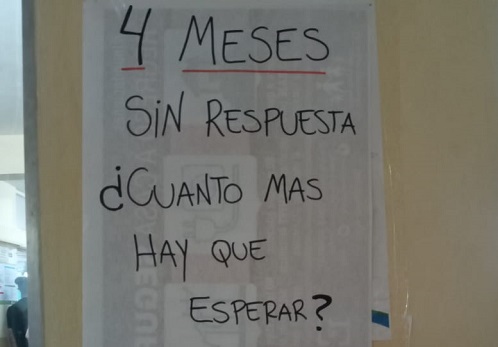 4 MESES
SiN RESPUESTA
¿CUANTO MAS
HAY QUE
ESPERAR?